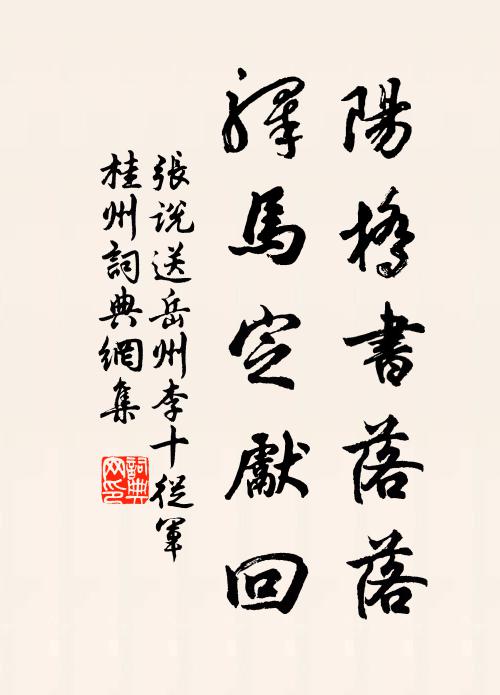 陽橋書落落
驛馬定獻回
張說送岳州李十從軍
桂州詞典網集
詞典
网印